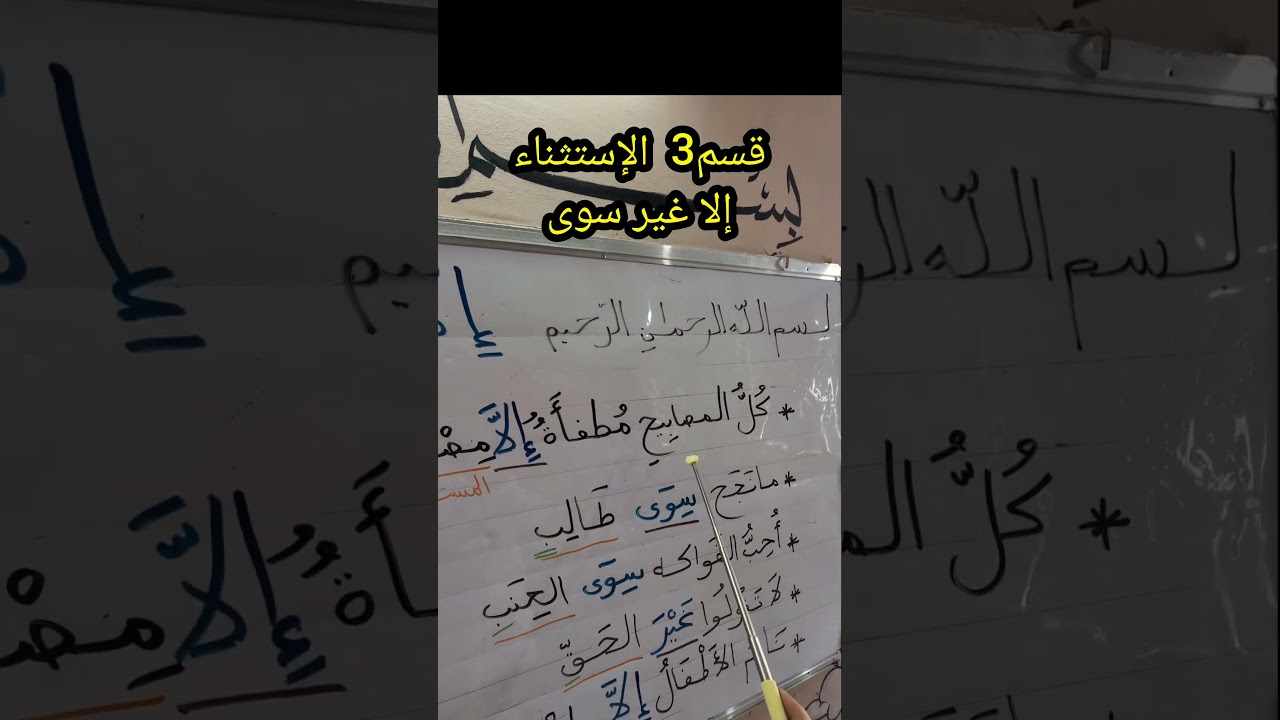 قسم3 الإستثناء
إلا غير سوى
بسم الله الرحمان الرحيم
* كُلُّ المصابيحِ مُطفأَةٌ إِلاَّ
المست
* ما نَجَحَ سِوَى طَالِبٍ
* أُحِبُّ الفَواكه سِوَى العِنَبِ
* لاَ تَقُولُوا غَيْرَ الحَقِّ
* نَامَ الأَطْفَالُ إِلاَّ